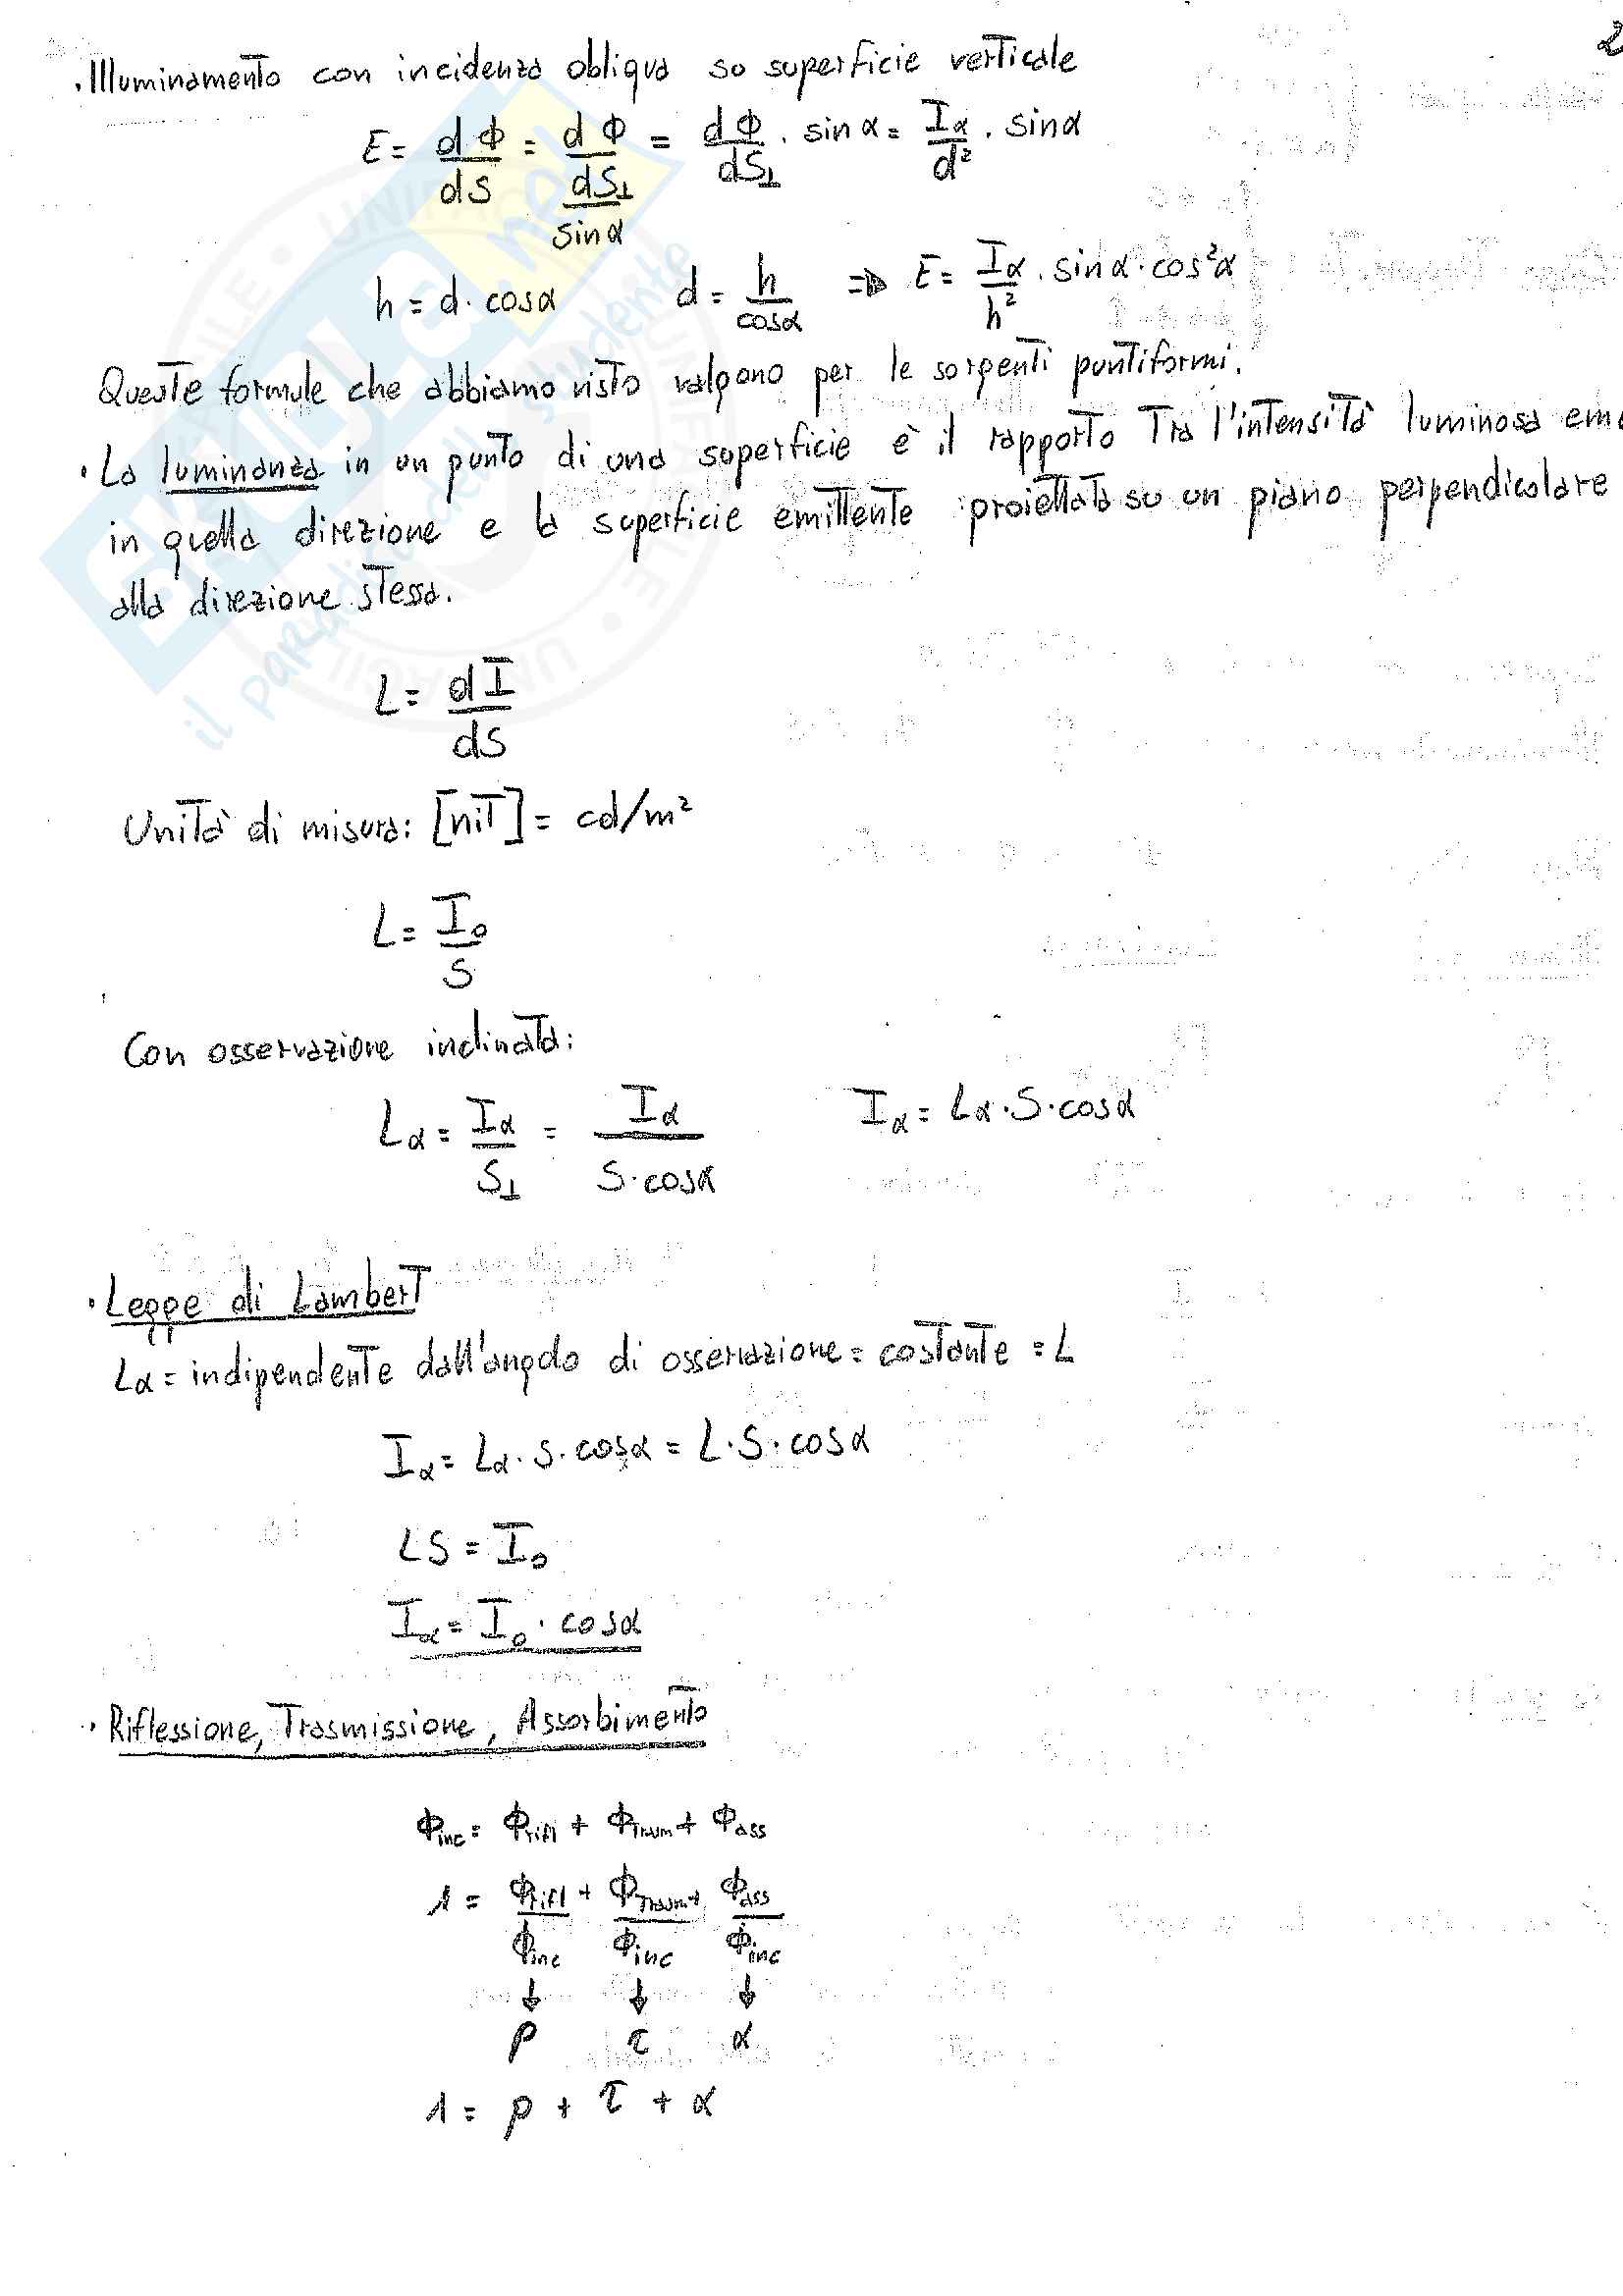 2
· Illuminamento con incidenza obliqua su superficie verticale
E = dΦ/dS = dΦ/(dS⊥/sin α) = dΦ/dS⊥ · sin α = Iα/d² · sin α
h = d · cos α d = h/cos α ⇒ E = Iα/h² · sin α · cos²α
Queste formule che abbiamo visto valgono per le sorgenti puntiformi.
· La luminanza in un punto di una superficie è il rapporto tra l'intensità luminosa em
in quella direzione e la superficie emittente proiettata su un piano perpendicolare
alla direzione stessa.
L = dI/dS
Unità di misura: [nit] = cd/m²
L = I₀/S
Con osservazione inclinata:
Lα = Iα/S⊥ = Iα/(S · cos α) Iα = Lα · S · cos α
· Legge di Lambert
Lα = indipendente dall'angolo di osservazione = costante = L
Iα = Lα · S · cos α = L · S · cos α
LS = I₀
Iα = I₀ · cos α
· Riflessione, Trasmissione, Assorbimento
Φinc = Φrifl + Φtrasm + Φass
1 = Φrifl/Φinc + Φtrasm/Φinc + Φass/Φinc
↓ ↓ ↓
ρ τ α
1 = ρ + τ + α
il paradiso dello studente